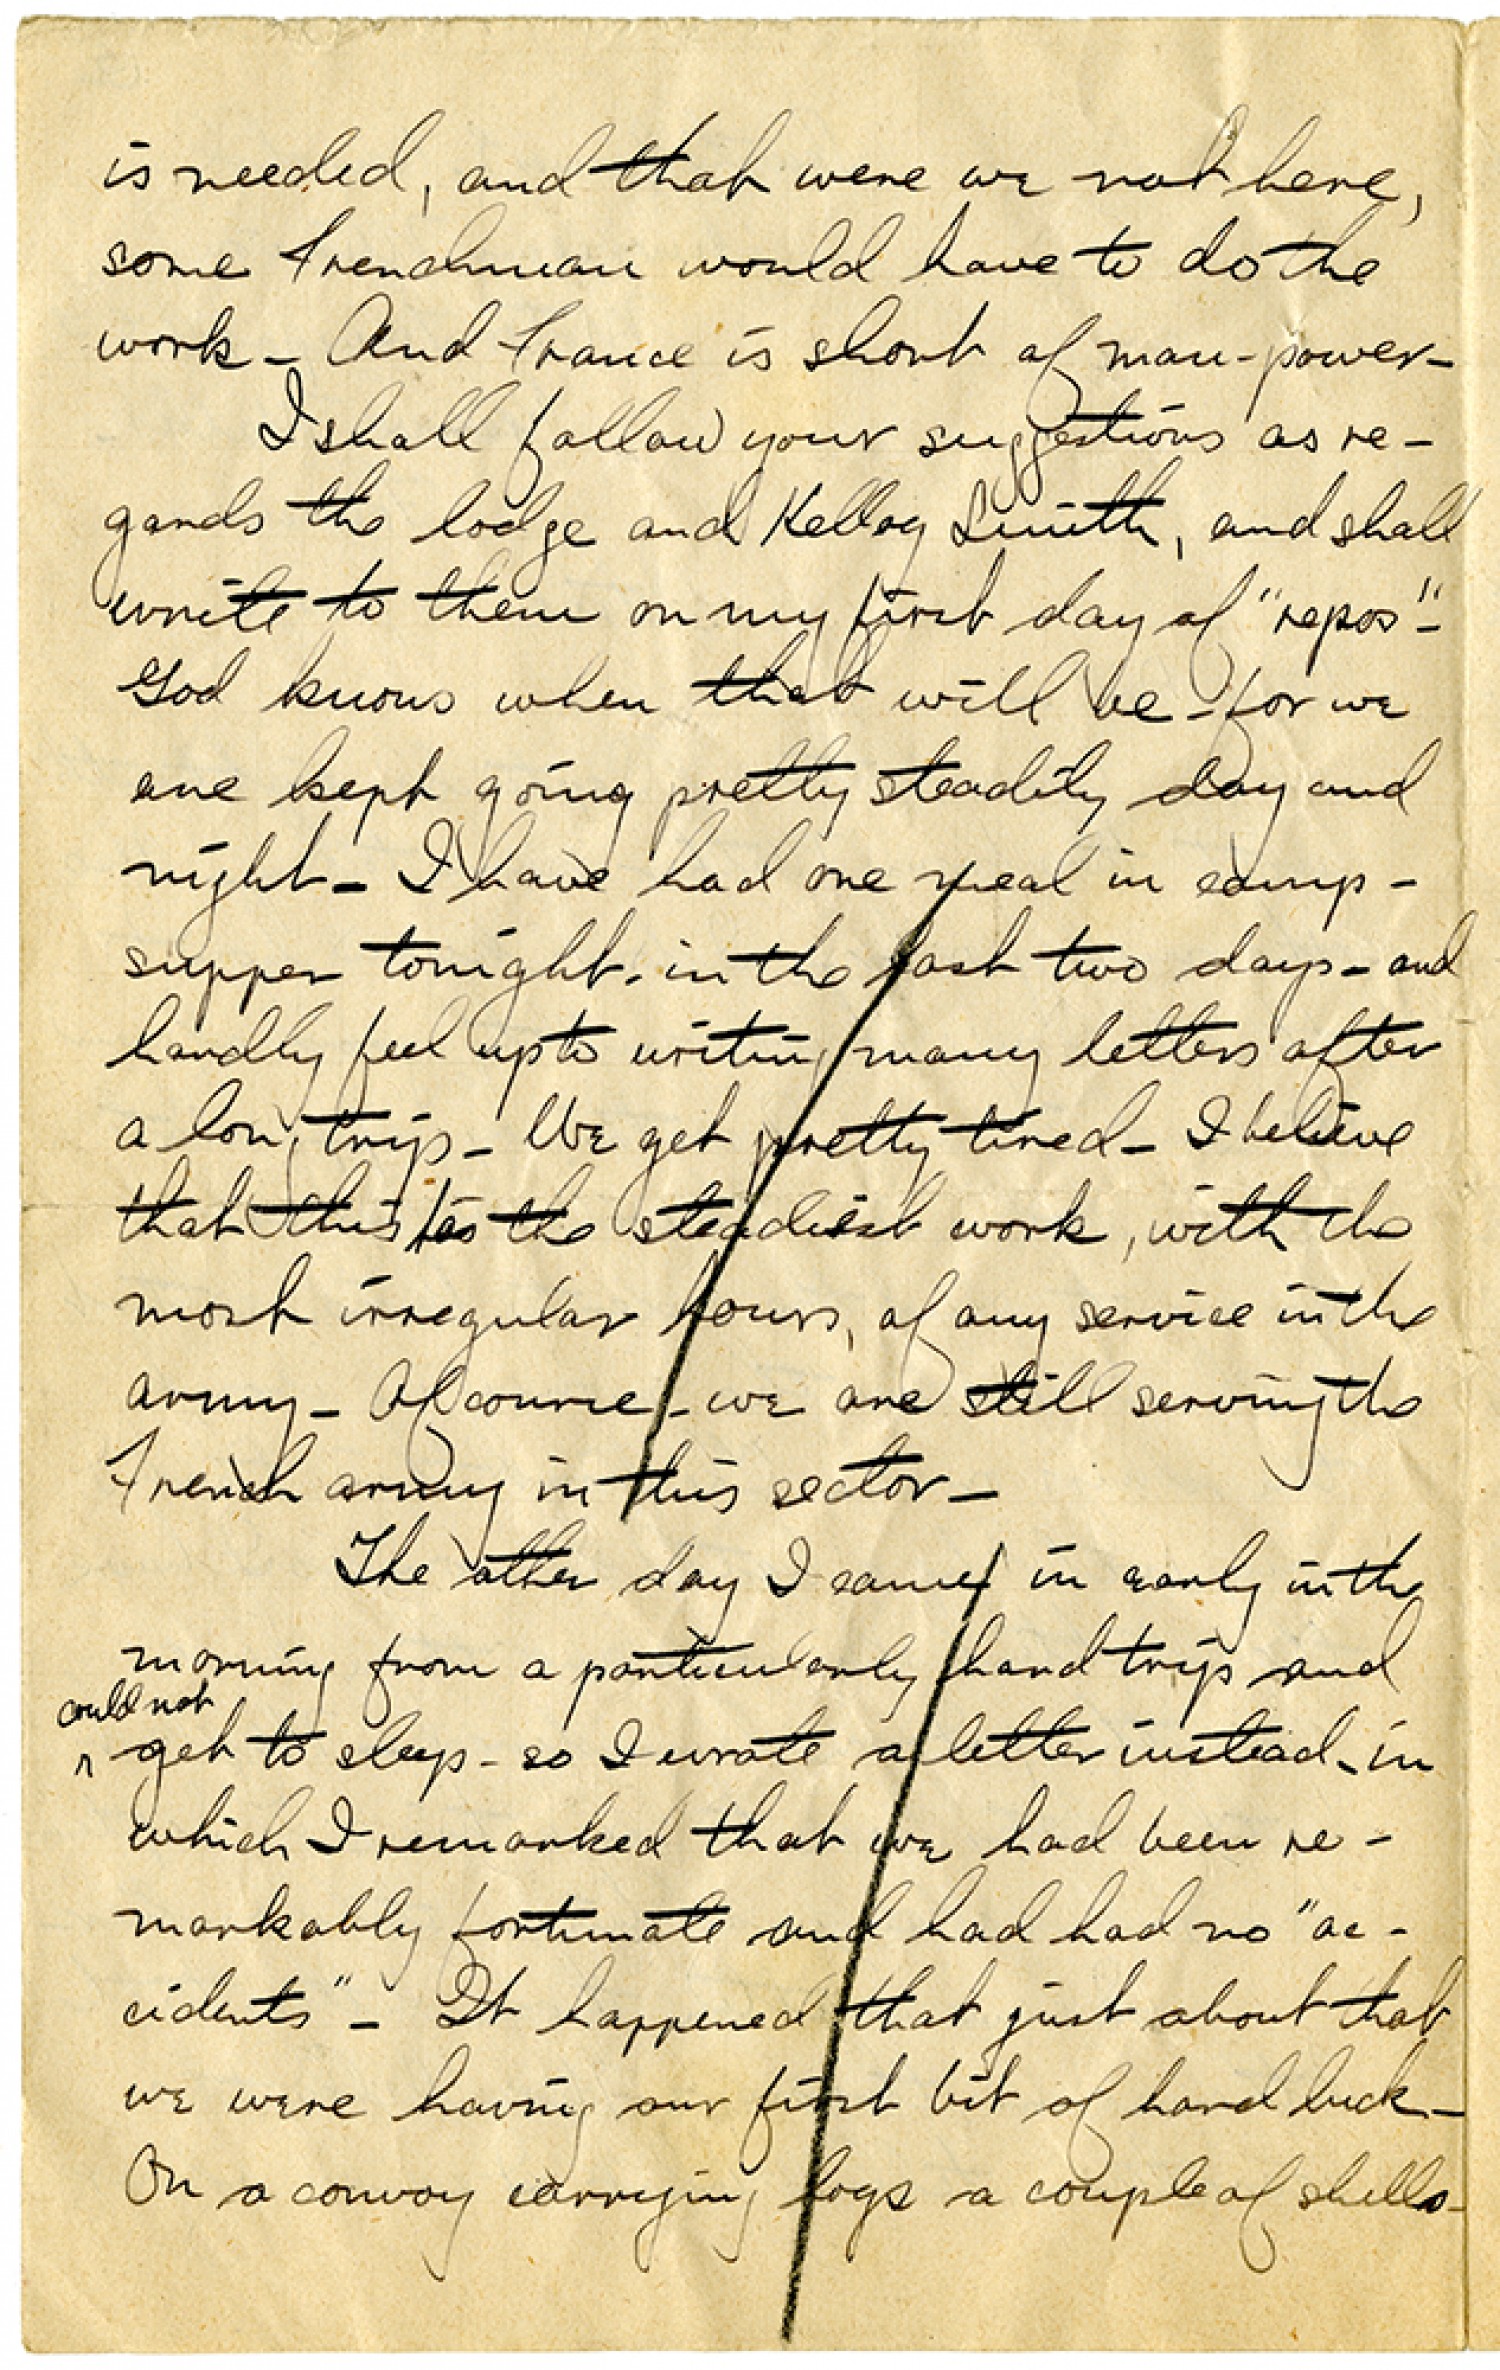 is needed, and that were we not here,
some Frenchman would have to do the
work – And France is short of man-power –
I shall follow your suggestions as re-
gards the lodge and Kellog Smith, and shall
write to them on my first day of "repos" –
God knows when that will be – for we
are kept going pretty steadily day and
night – I have had one meal in camp –
supper tonight – in the last two days – and
hardly feel up to writing many letters after
a long trip – We get pretty tired – I believe
that this is the steadiest work, with the
most irregular hours, of any service in the
army – Of course – we are still serving the
French army in this sector –
The other day I came in early in the
morning from a particularly hard trip and
could not
^ get to sleep – so I wrote a letter instead – in
which I remarked that we had been re-
markably fortunate and had had no "ac-
cidents" – It happened that just about that
we were having our first bit of hard luck –
On a convoy carrying logs a couple of shells –